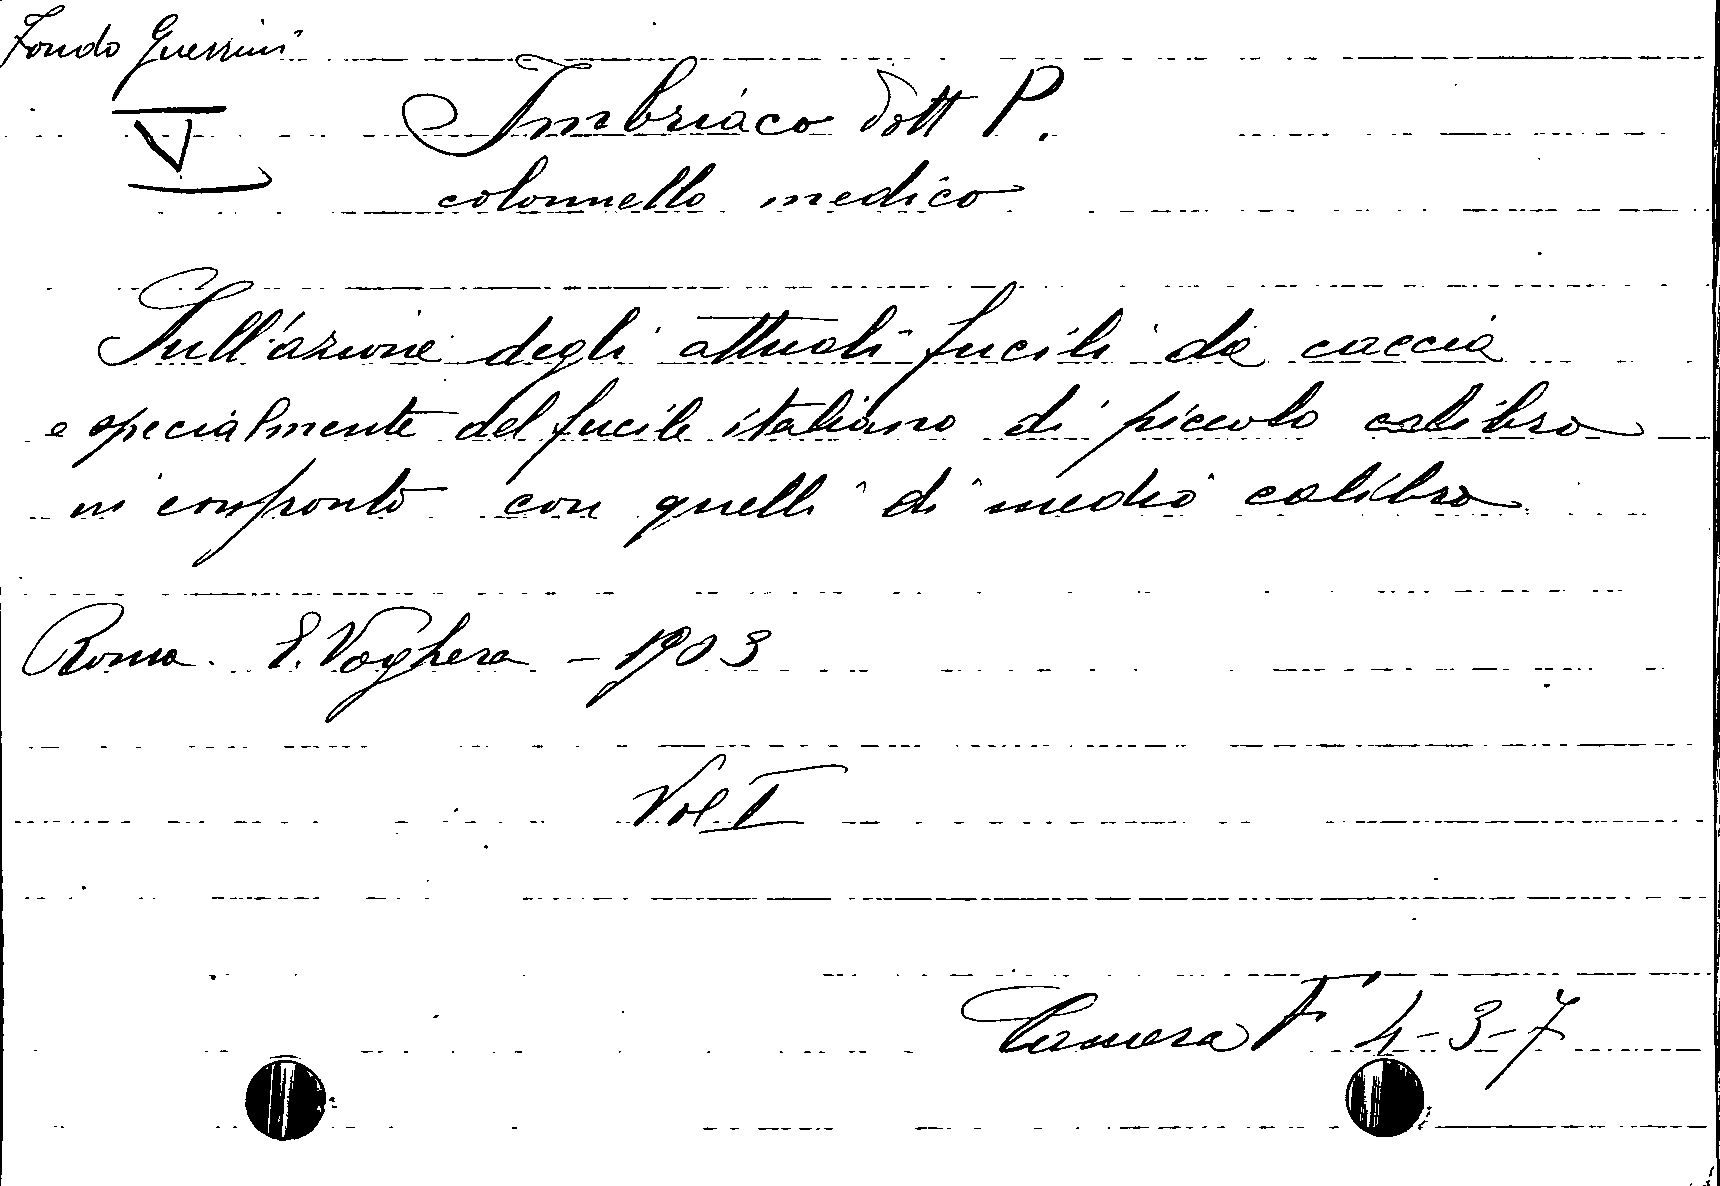 Fondo Guerrini
V
Imbriaco Dott P.
colonnello medico
Sull'azione degli attuali fucili da caccia
e specialmente del fucile italiano di piccolo calibro
in confronto con quelli di medio calibro
Roma. E. Voghera - 1903
Vol I
Camera F 4-3-7